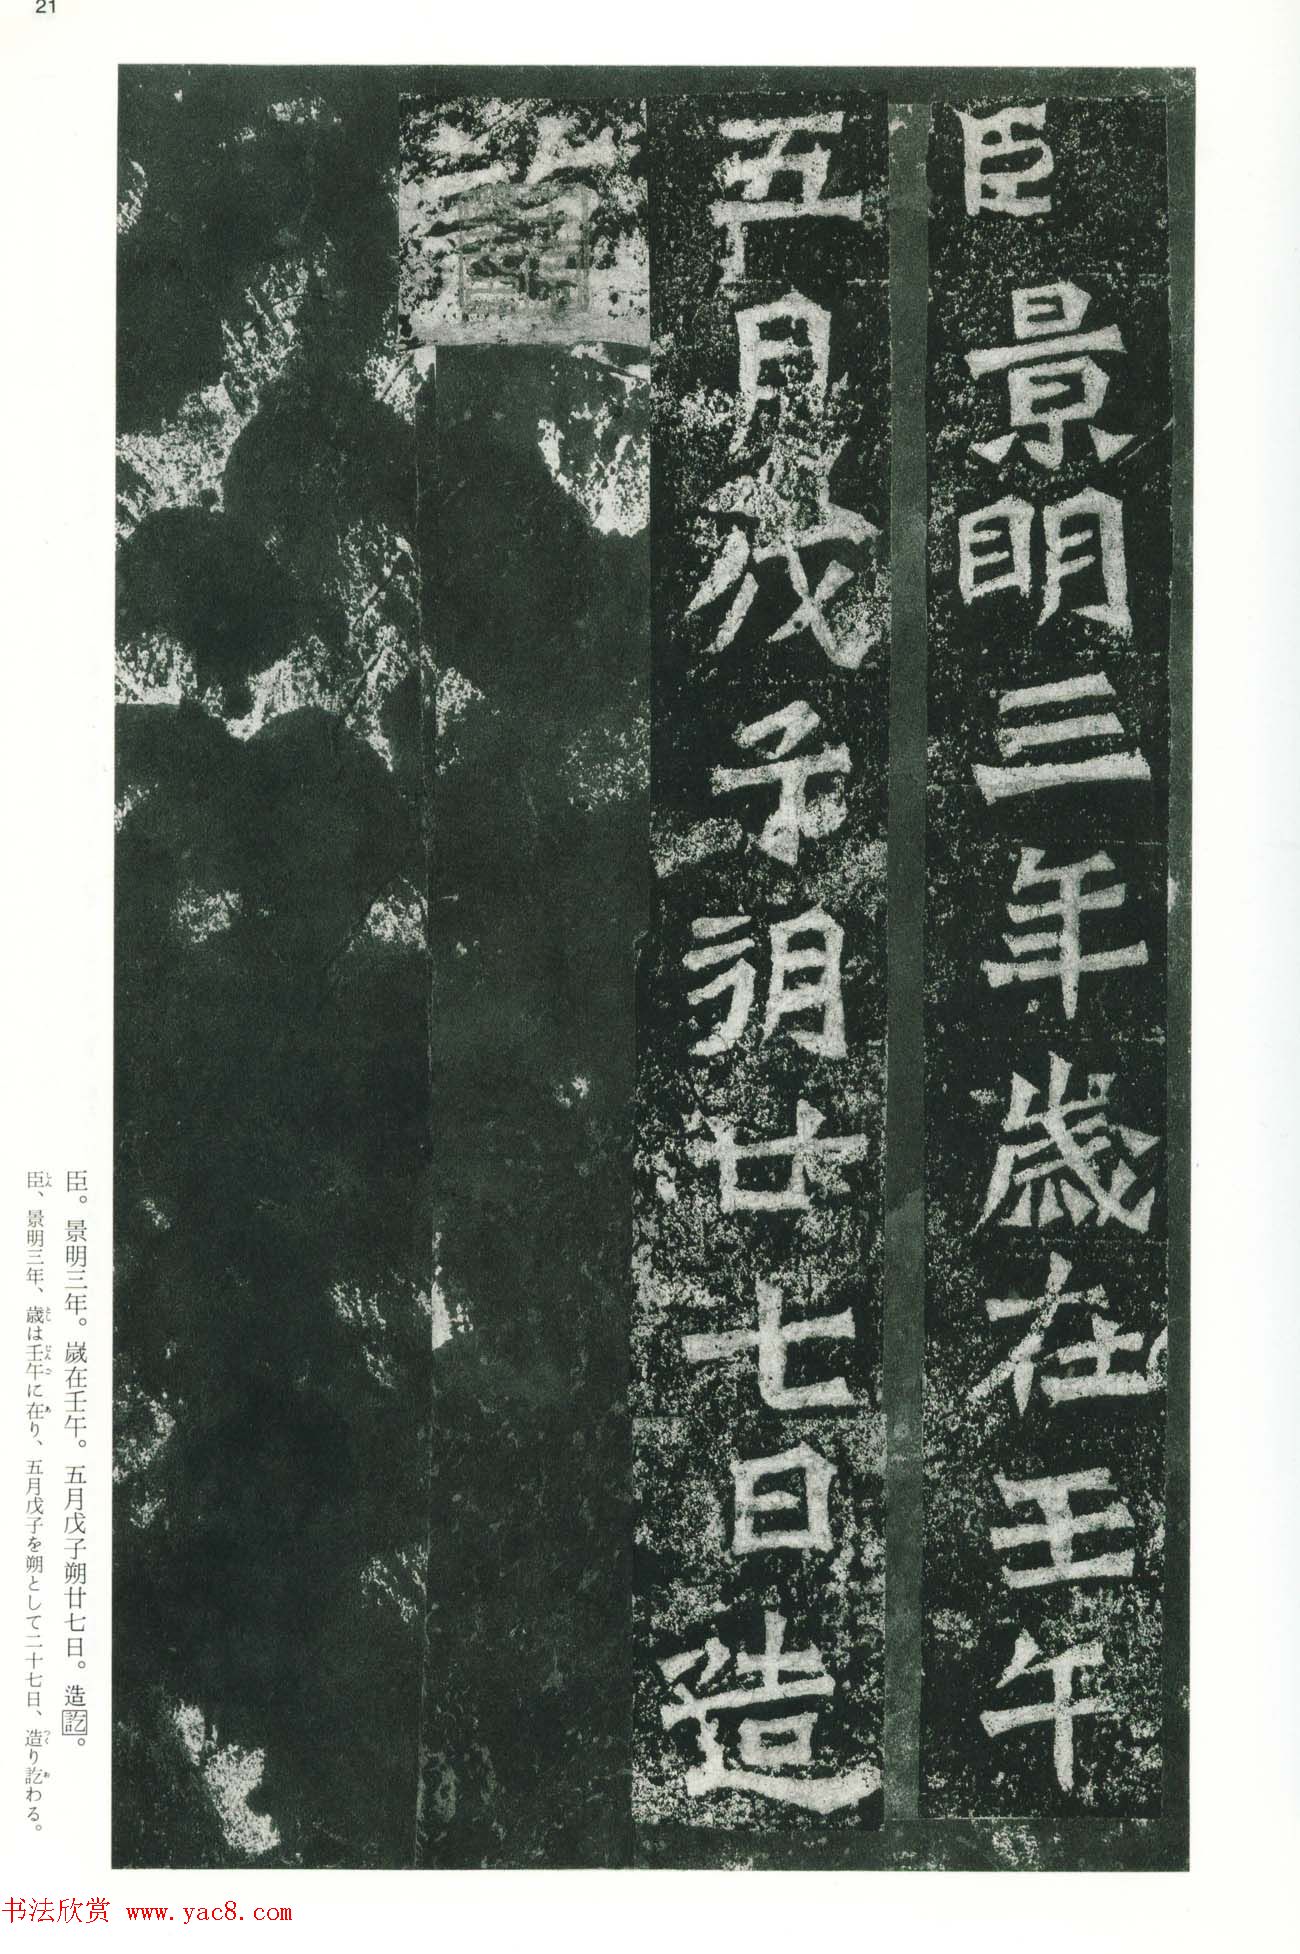 21
臣景明三年歲在壬午
五月戊子朔廿七日造
臣。景明三年。歲在壬午。五月戊子朔廿七日。造訖。
臣、景明三年、歳は壬午に在り、五月戊子を朔として二十七日、造り訖わる。
书法欣赏 www.yac8.com